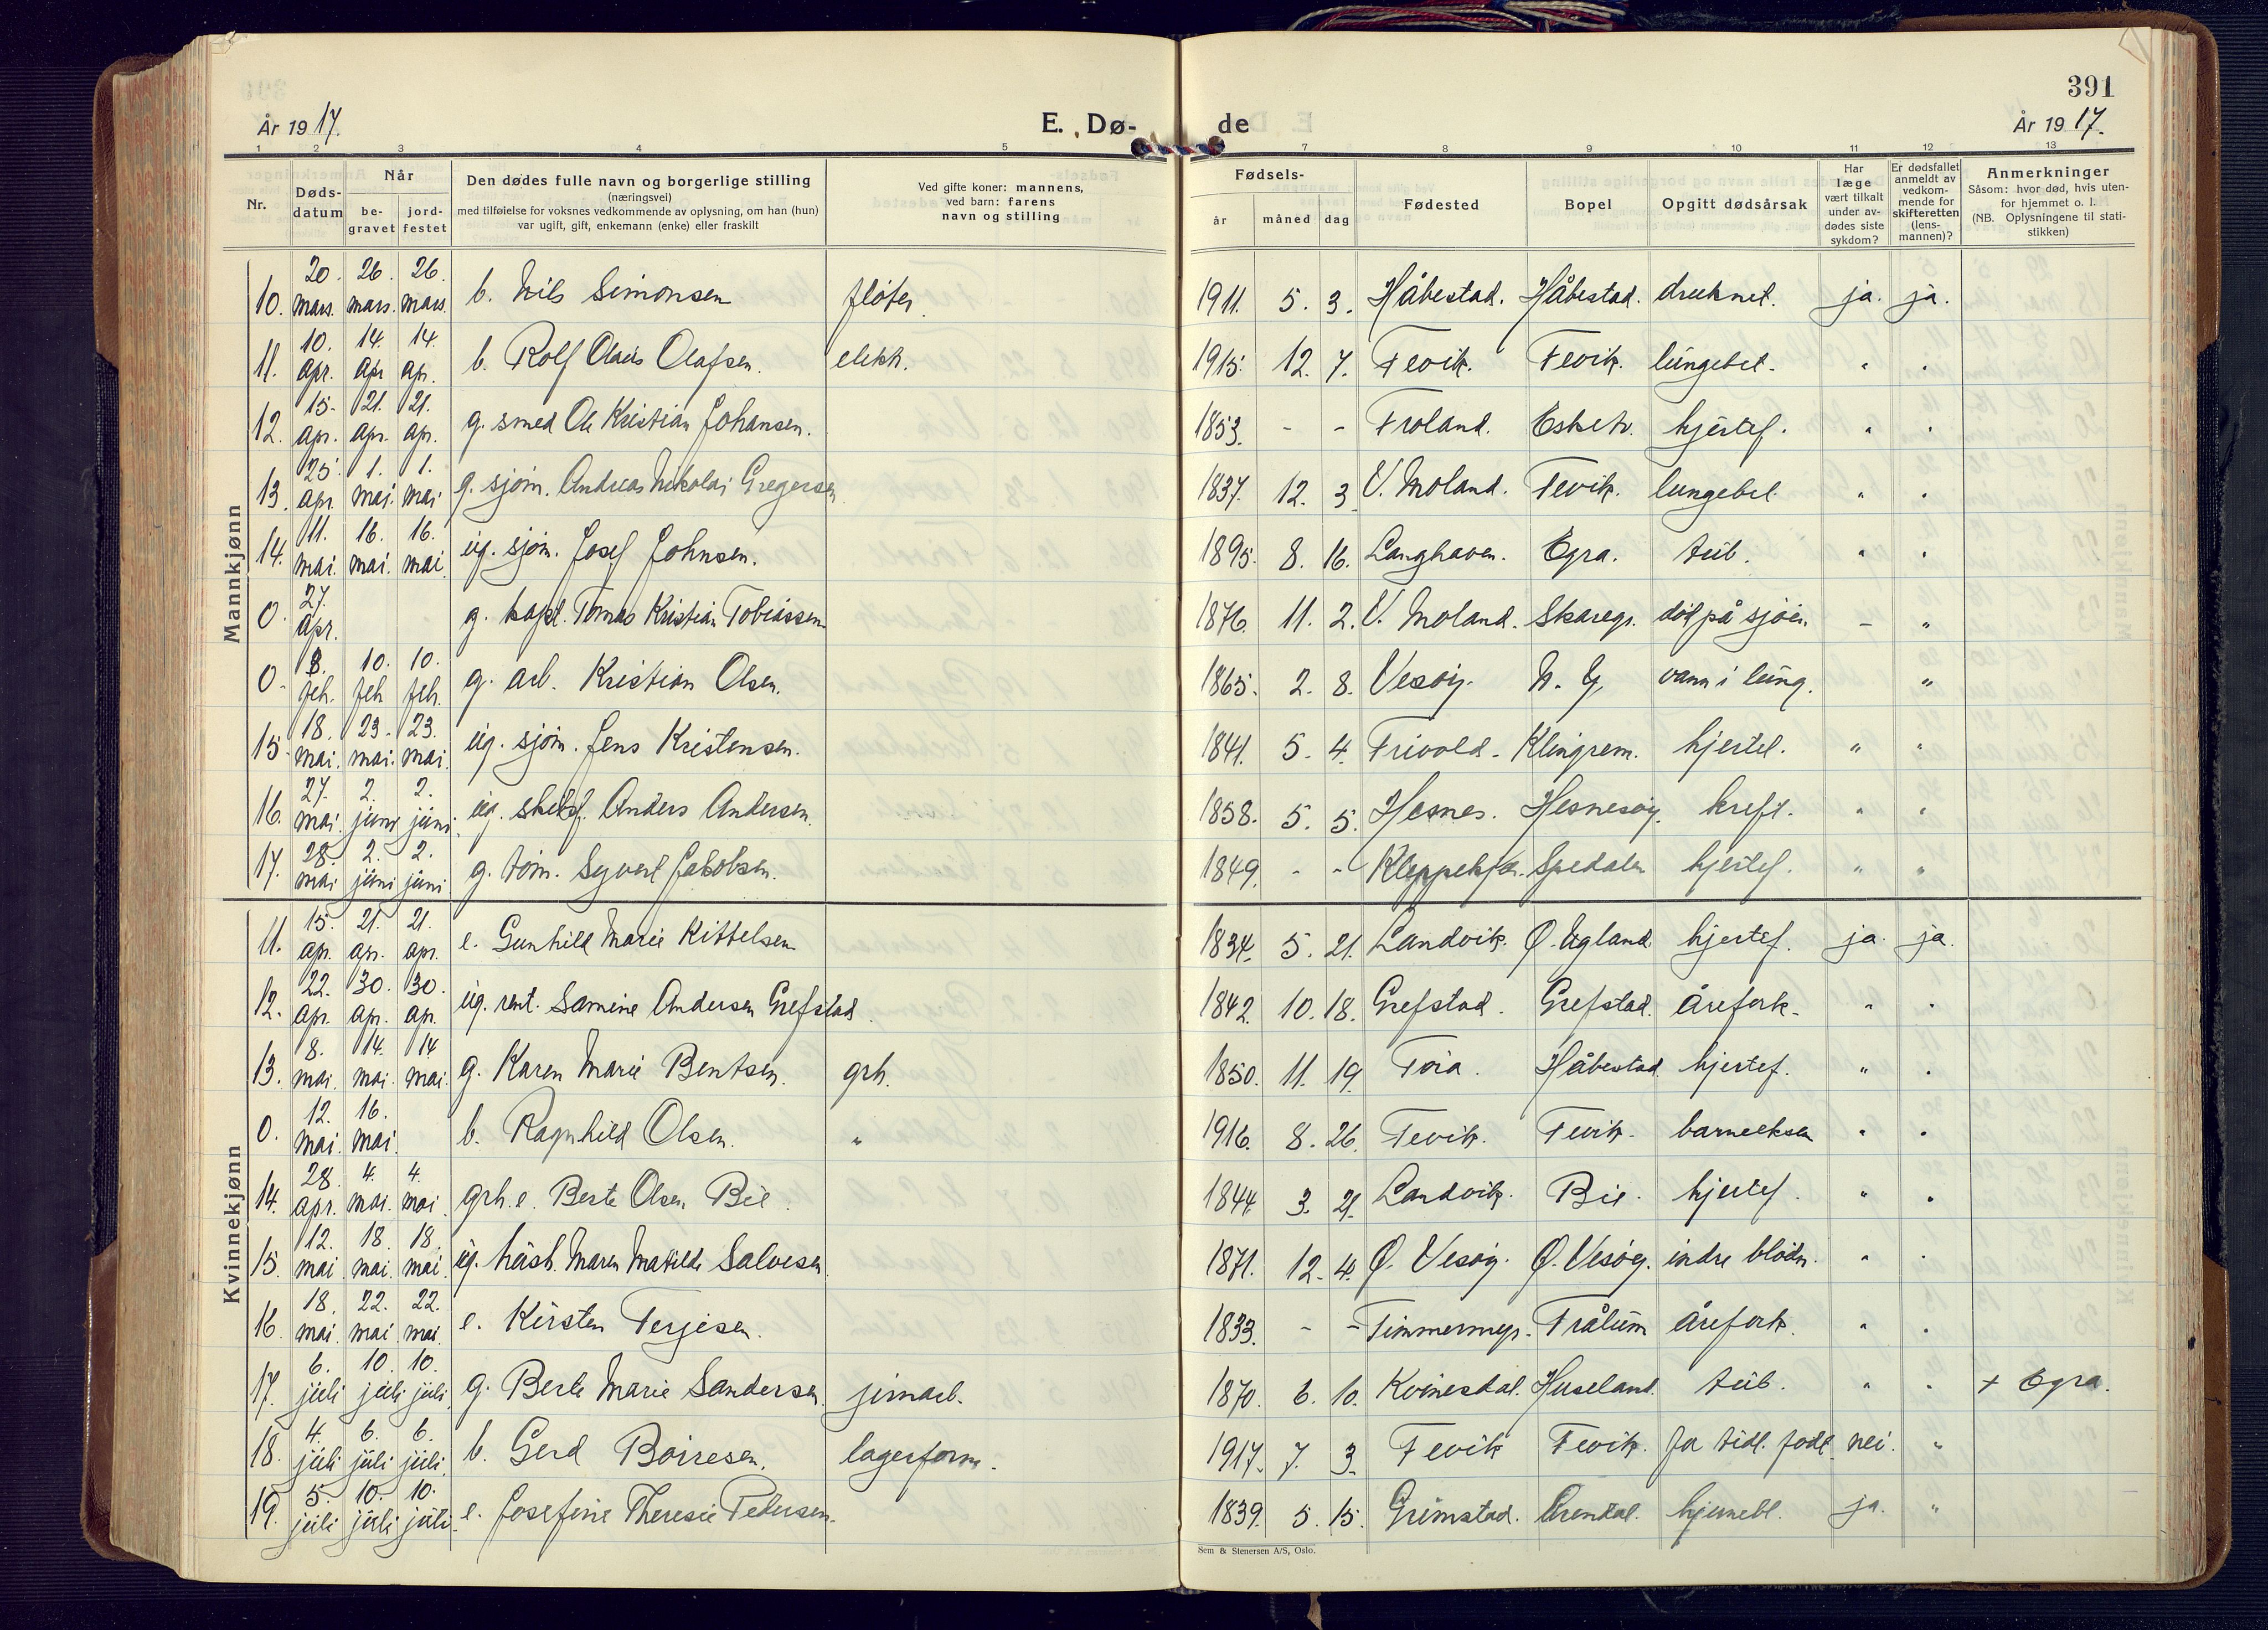 391
År 1917. E. Dø- de År 1917.
1 2 3 4 5 7 8 9 10 11 12 13
Nr. Døds-datum Når be-gravet jord-festet Den dødes fulle navn og borgerlige stilling (næringsvei) med tilføielse for voksnes vedkommende av oplysning, om han (hun) var ugift, gift, enkemann (enke) eller fraskilt Ved gifte koner: mannens, ved barn: farens navn og stilling Fødsels- år måned dag Fødested Bopel Opgitt dødsårsak Har læge vært tilkalt under av-dødes siste sykdom? Er dødsfallet anmeldt av vedkom-mende for skifteretten (lens-mannen)? Anmerkninger Såsom: hvor død, hvis uten-for hjemmet o. l. (NB. Oplysningene til stati-stikken)
Mannkjønn
10. 20. mars. 26. mars. 26. mars. b. Nils Simonsen fløter 1911. 5. 3. Håbestad. Håbestad. druknet. ja. ja.
11. 10. apr. 14. apr 14. ap. b. Rolf Olaus Olafsen. elekk. 1915. 12. 7. Fevik. Fevik. lungebet. " "
12. 15. apr. 21. apr. 21. ap. g. smed Ole Kristian Johansen. 1853. - - Froland. hjertef. " "
13. 25. apr. 1. mai. 1. mai g. sjøm. Andreas Nikolai Gregersen 1837. 12. 3. V. Moland. Fevik. lungebet. " "
14. 11. mai. 16. mai. 16. mai. ug. sjøm. Josef Johnsen. 1895. 8. 16. Langhaven. Egra. tub. " "
0. 27. apr. g. kapt. Tomas Kristian Tobiassen 1876. 11. 2. V. Moland. Skaregr. død på sjøen. - "
0. 8. feb. 10. feb 10. feb. g. arb. Kristian Olsen. 1865. 2. 8. Vesøy. N. G. vann i lung. "
15. 18. mai. 23. mai. 23. mai. ug. sjøm. Jens Kristensen. 1841. 5. 4. Frivold. Klingrem. hjertef. " "
16. 27. mai. 2. juni 2. juni. ug. Anders Andersen. 1858. 5. 5. Hesnes. Hesnesøy. kreft. " "
17. 28. mai 2. juni 2. juni g. tøm. Syvert Jakobsen. 1849. - - Spedalen hjertef. " "
Kvinnekjønn
11. 15. apr. 21. apr. 21. apr. e. Gunhild Marie Kittelsen 1834. 5. 21. Landvik. Ø. Ugland. hjertef. ja. ja.
12. 22. apr. 30. ap. 30. ap. ug. rent. Samine Andersen Grefstad 1842. 10. 18. Grefstad. Grefstad. årefork. " "
13. 8. mai. 14. mai. 14 mai. g. Karen Marie Bentsen. grh. 1850. 11. 19. Håbestad. hjertef. " "
0. 12. mai. 16. mai. b. Ragnhild Olsen. " 1916. 8. 26. Fevik. Fevik. " "
14. 28. apr. 4. mai. 4. mai. grh. e. Berte Olsen Bie. 1844. 3. 21. Landvik. Bie. hjertef. " "
15. 12. mai 18. mai. 18. mai. ug. hush. Maren Matilde Salvesen. 1871. 12. 4. Ø. Vesøy. Ø. Vesøy. indre blødn. " "
16. 18. mai. 22. mai 22. mai. e. Kirsten Terjesen. 1833. - - Trålum årefork. " "
17. 6. juli 10. juli 10. juli. g. Berte Marie Sandersen jernarb. 1870. 6. 10. Kvinesdal. Huseland. tub. " " + Egra.
18. 4. juli 6. juli 6. juli. b. Gerd Børresen. lagerform. 1917. 7. 3. Fevik Fevik. For tidl. født. nei. "
19. 5. juli 10. juli 10. juli. e. Josefine Therese Pedersen. 1839. 5. 15. Grimstad. Arendal. hjernebl. ja. "
Sem & Stenersen A/S, Oslo.